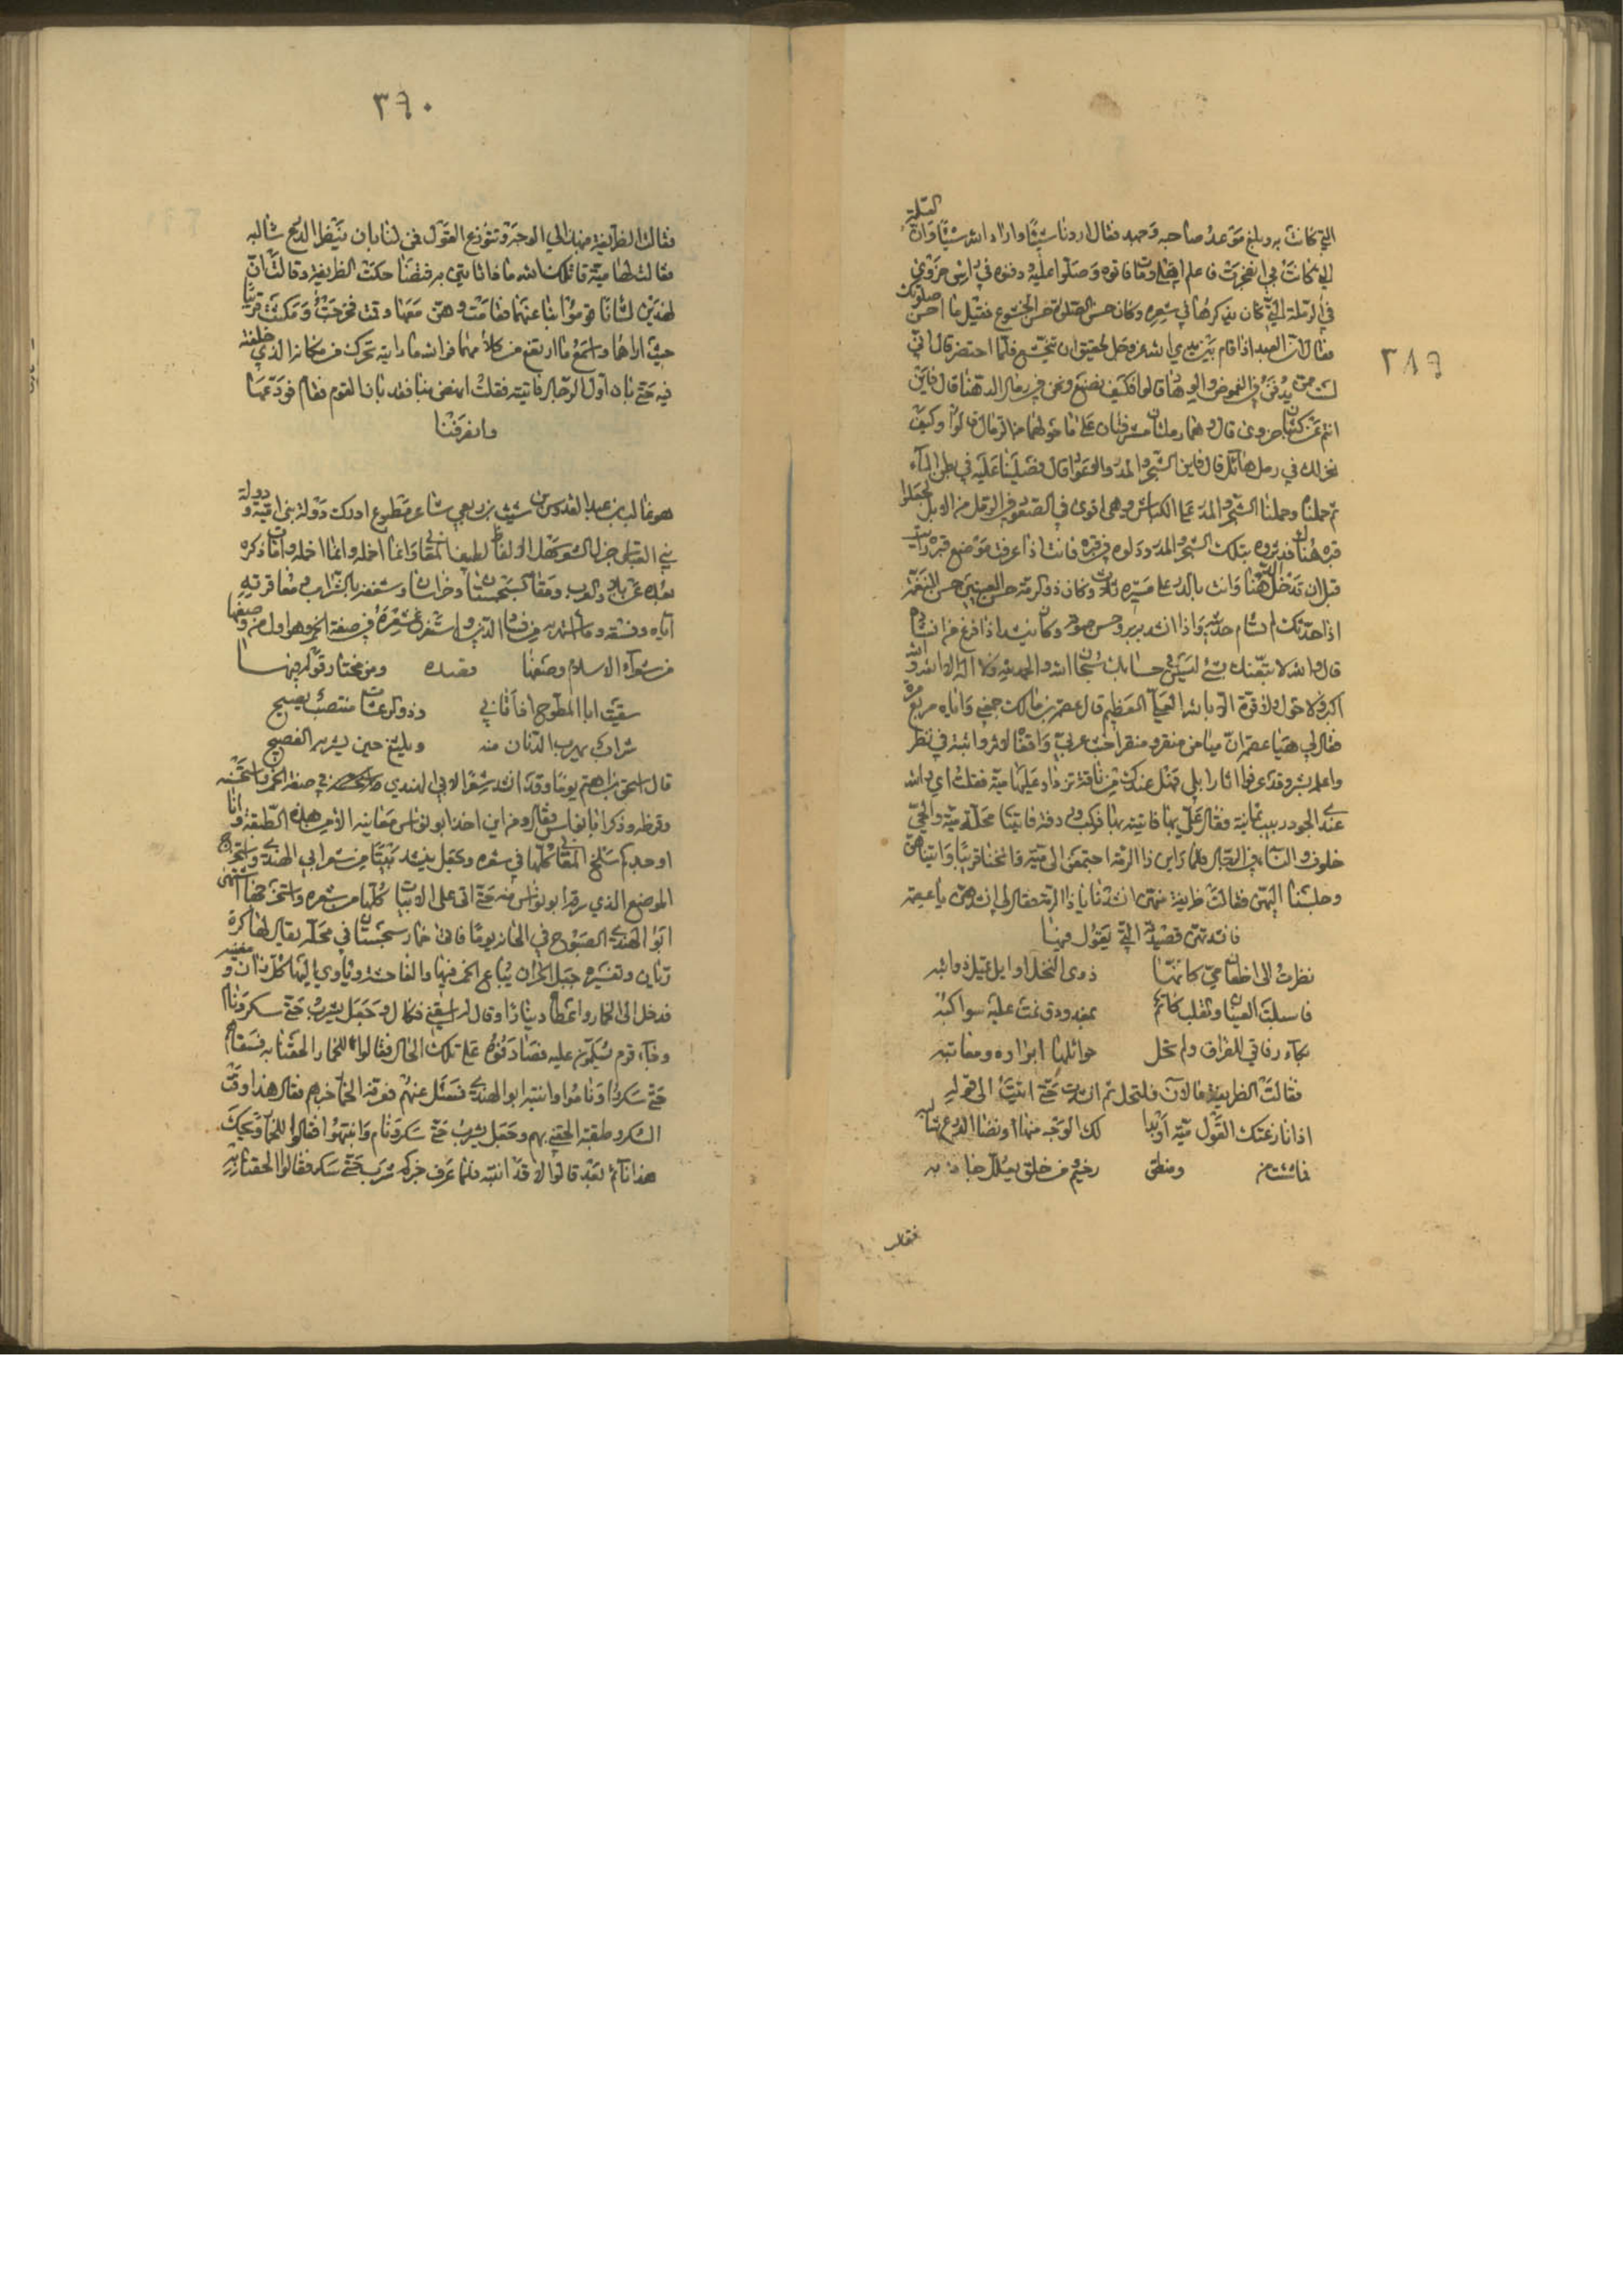 ٢٨٩
التي كانت به وبلغ موعد صاحبه وجهد فقال اردنا شيئا واراد الله شيئا وان العلة
التي كانت بي انفجرت فاعلم اهله ومات فاتوه وصلوا عليه ودفنوه في براس حزوى
في الرملة التي كان يذكرها في شعره وكان حسن الصلوة حسن الخشوع فقيل ما احسن صلوتك
فقال ان العبد اذا قام بين يدي الله عز وجل لحقيق ان يخشع فلما احتضر قال اني
لست ممن يدفن في الغموض والوهاد قالوا فكيف نصنع ونحن في رمال الدهنا قال فاين
انتم عن كثبان حزوى قال وهما رملتان مشرفتان على ما حولهما من الرمال قالوا وكيف
نحفر لك في رمل هائل قال فاين الشجر والمدر والاعواد قال فصلينا عليه في بطن الماء
ثم حملنا وحملنا الشجر والمدر على الكباش وهي اقوى في الصعود في الرمل من الابل فجعلوا
قبره هناك وزبروه بتلك الشجر والمدر ودلوه في قبره فانت اذا عرفت موضع قبره رايته
قبل ان تدخل الدهنا وانت بالدو على مسيرة ثلاث وكان ذو الرمة حسن العينين حسن النغمة
اذا حدثك لم تسام حديثه واذا انشد بربر وحسن صوته وكان ينشد اذا فرغ من انشاده
قال والله لاتبعنك بشئ ليس في حسابك سبحان الله والحمد لله ولا اله الا الله والله
اكبر ولا حول ولا قوة الا بالله العلي العظيم قال عصمة بن مالك جمعني واياه مربع مرة
فقال لي هيا عصمة ان ميا من منقر ومنقر اخبث حي واقفاه لاثر واثبته في نظر
واعلمه بشر وقد عرفوا اثار ابلي فهل عندك من ناقة تزدار عليها مية فقلت اي والله
عندي الجوذر بنت يمانية فقال علي بها فاتيته بها فركب وردفته فاتينا محلة مية والحي
خلوف والنساء في الرحال فلما راين ذا الرمة اجتمعن الى مية فانخنا قريبا واتيناهن
وجلسنا اليهن فقالت ظريفة منهن انشدنا يا ذا الرمة فقال لي انشدهن يا عصمة
فانشدتهن قصيدته التي يقول فيها
نظرت الى اظعان مي كانها    ذرى النخل او اثل تميل ذوائبه
فاسبلت العينان والقلب كاتم    بمغرورق نمت عليه سواكبه
بكاء رفاقي الفراق ولم تحل    حوائلها اسراره ومعاتبه
فقالت الظريفة فالان فلتحل ثم انشدت حتى اتيت الى قوله
اذا نازعتك القول مية او بدا    لك الوجه منها او نضا الدرع سالبه
فما شئت من    ومنطق    رخيم ومن خلق يعلل جادبه
فقالت
٣٩٠
فقالت الظريفة منهن اني الوجه وتنوزع القول فمن لنا بان ينضو الدرع سالبه
فقالت لها مية قاتلك الله ماذا تاتين به فضحكت الظريفة وقالت ان
لهذين لشانا قوموا بنا عنهما فقامت وهن معها وقمت فخرجت ومكثت قريبا
حيث اراهما واسمع ما ارتفع من كلامهما فوالله ما رايته تحرك من مكانه الذي خلفته
فيه حتى ثاب اول الرجال فاتيته فقلت انهض بنا فقد ثاب القوم فقام فودعها
وانصرفنا
هو غالب بن عبد القدوس بن شبث بن ربعي شاعر مطبوع ادرك دولة بني امية ودولة
بني العباس جزل الشعر سهل الالفاظ لطيف المعاني وانما اخمله وامات ذكره
بعده عن بلاد العرب ومقامه بسجستان وخراسان وشغفه بالشراب ومعاقرته
اياه وفسقه وما اشتهر به من فساد الدين واستفرغ شعره في صفة الخمر وهو اول من وصفها
من شعراء الاسلام وصفها    وقصده    ومن مختار قوله فيها
سقيت ابا المطرح اذ اتاني    وذو الرعثات منتصب يصيح
شرابا يهرب الذبان منه    ويلثغ حين يشربه الفصيح
قال اسحق بن ابراهيم يوما وقد انشد شعرا لابي الهندي في صفة الخمر فاستحسنه
وقرظه وذكر ابا نواس فقال ومن اين اخذ ابو نواس معانيه الا من هذه الطبقة وانا
اوجدكم سلخه المعاني كلها في شعره وجعل ينشد بيتا من شعر ابي الهندي واستخرج
الموضع الذي سرقه ابو نواس منه حتى اتى على الابيات كلها من شعره واستخرجها اشتهى
ابو الهندي الصبوح في الحانة يوما فاتى خمارا بسجستان في محلة يقال لها كوه
زيان وتفسيره جبل الخسران يباع الخمر فيها والفاحشة وياوي اليها كل زان ومغنية
فدخل الى الخمار واعطاه دينارا وقال له اسقني فكال له وجعل يشرب حتى سكر ونام
وجاء قوم يسلمون عليه فصادفوه على تلك الحال فقالوا للخمار الحقنا به فسقاهم
حتى سكروا وناموا وانتبه ابو الهندي فسئل عنهم فعرفه الخمار خبرهم فقال هذا وقت
السكر وطبقته الحقني بهم وجعل يشرب حتى سكر ونام وانتبهوا فقالوا للخمار ويحك
هذا نائم بعد قالوا لا قد انتبه فلما عرف خبركم شرب حتى سكر فقالوا الحقنا به